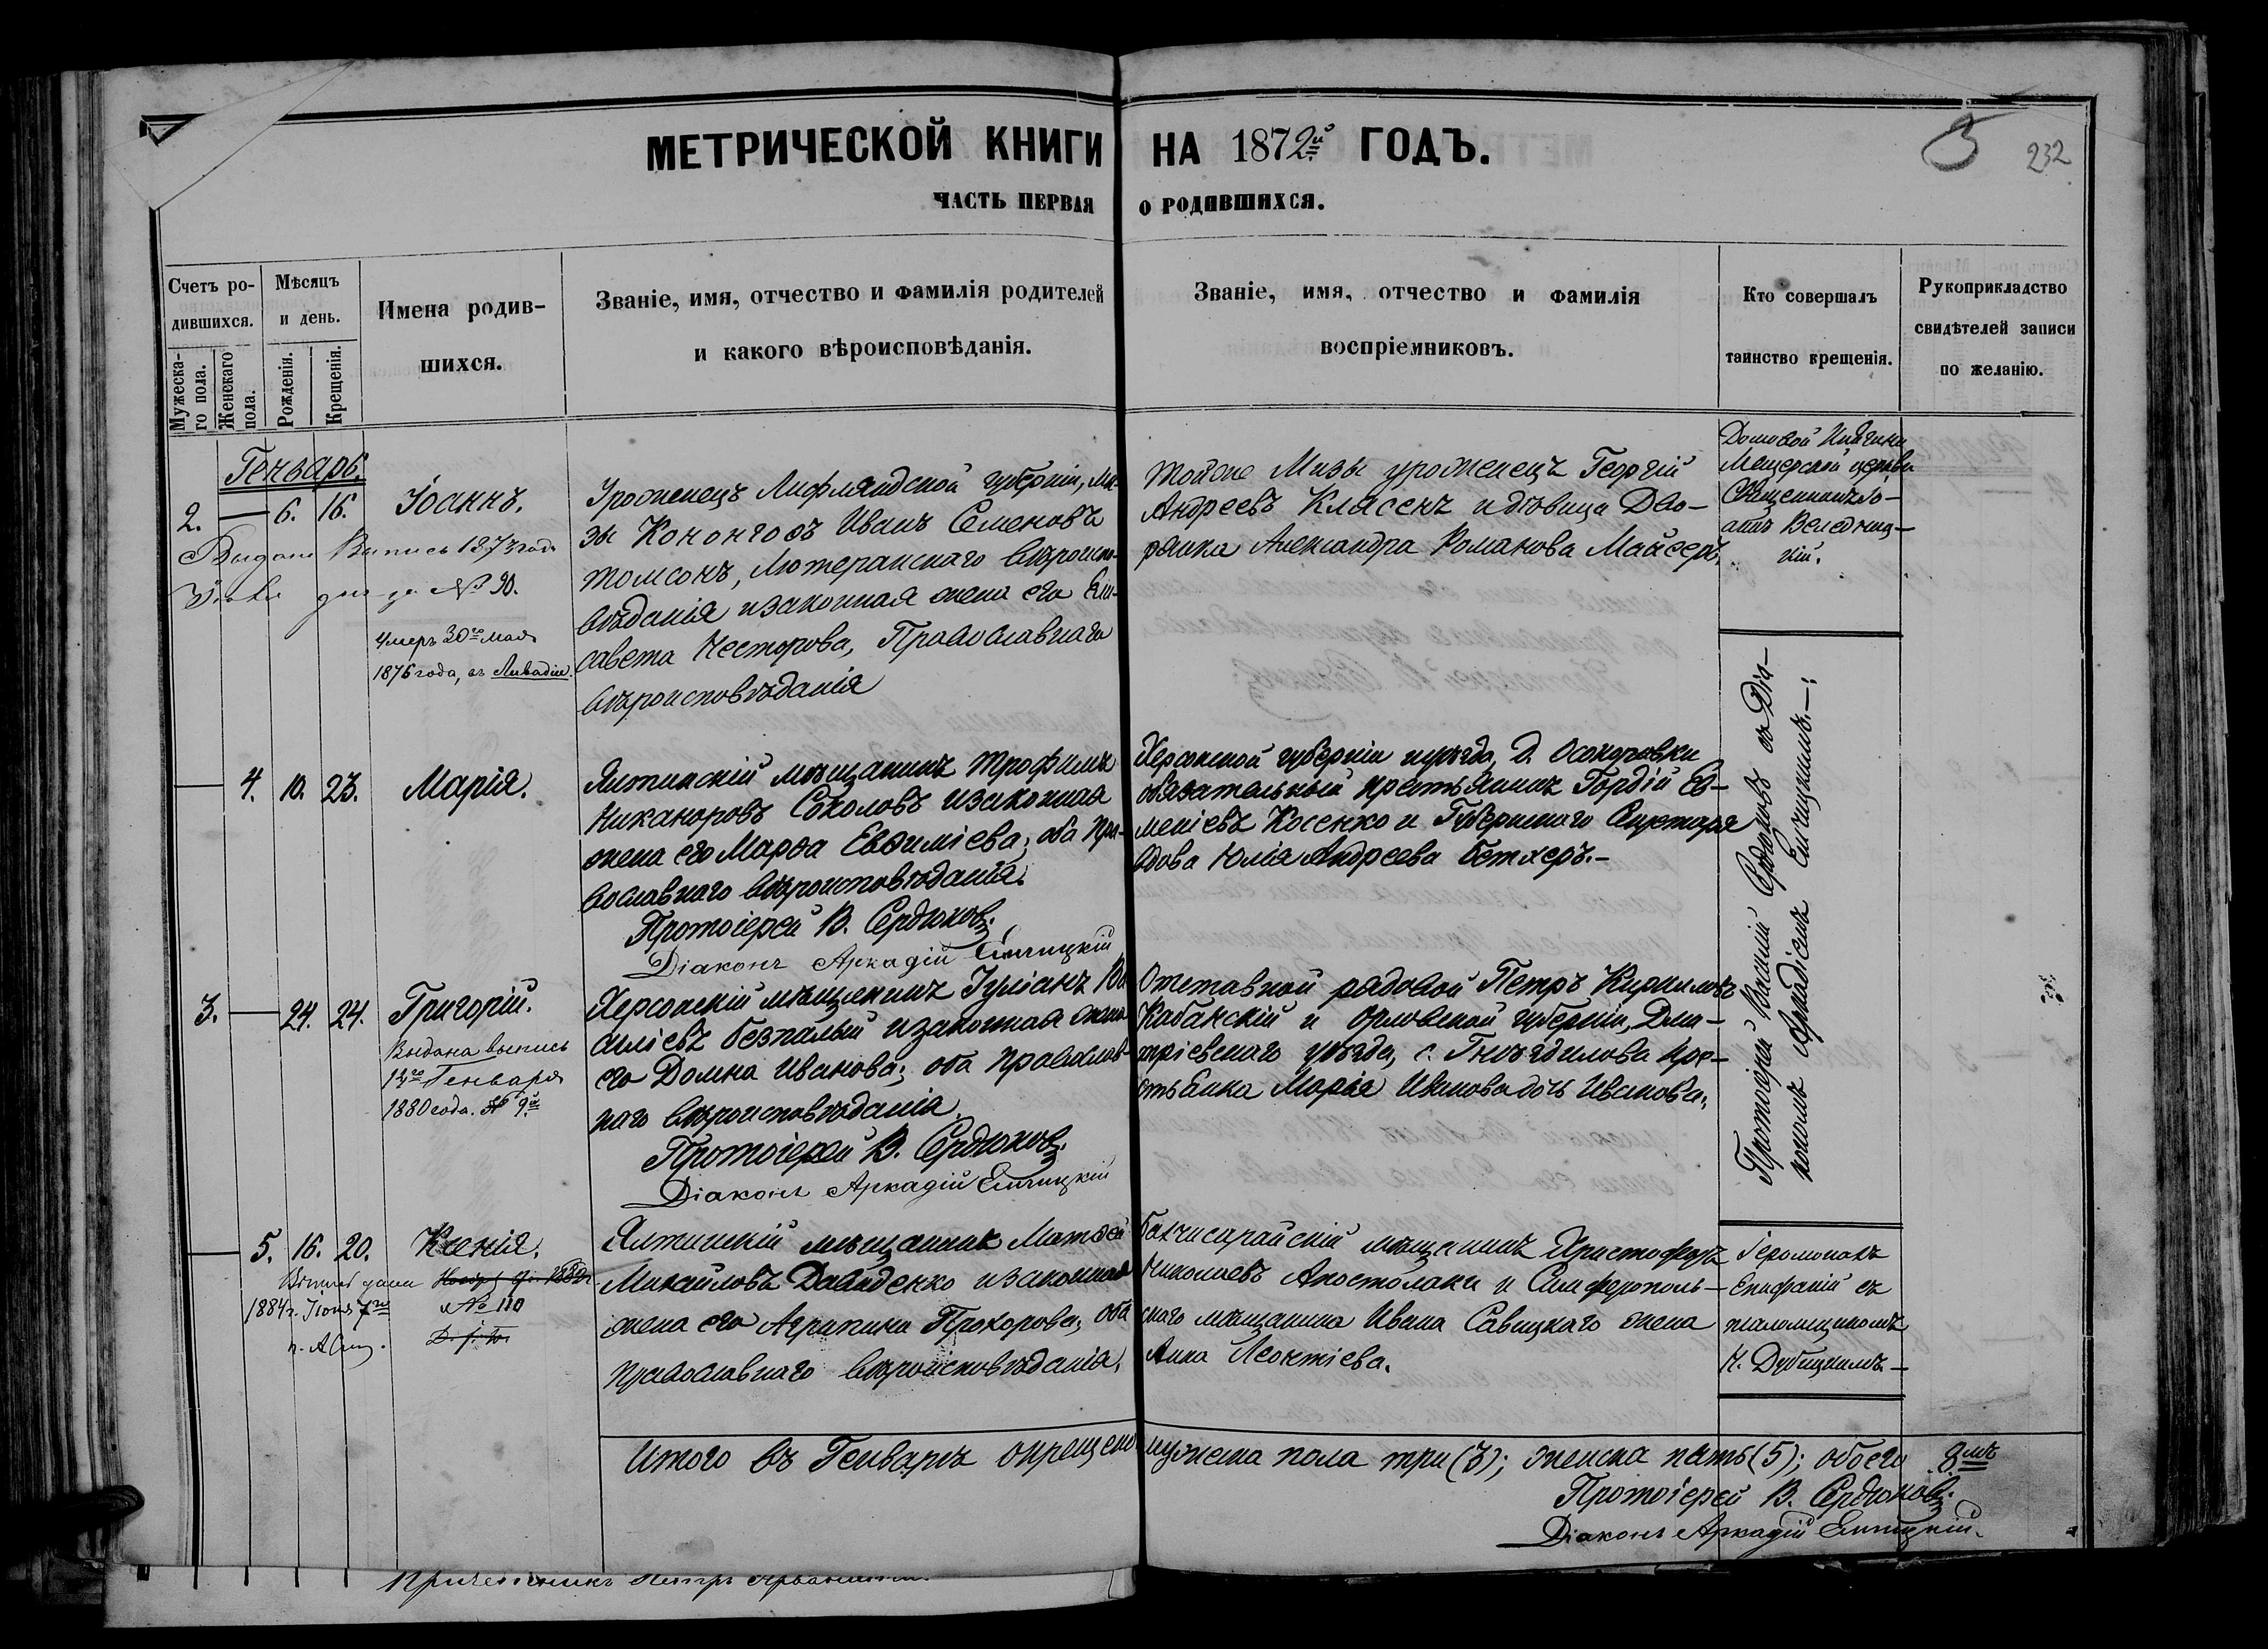 МЕТРИЧЕСКОЙ КНИГИ НА 1872й ГОДЪ.
5 232
ЧАСТЬ ПЕРВАЯ О РОДИВШИХСЯ.
Счетъ ро-
дившихся.
Мужеска-
го пола.
Женскаго
пола.
Мѣсяцъ
и день.
Рожденія.
Крещенія.
Имена родив-
шихся.
Званіе, имя, отчество и фамилія родителей
и какого вѣроисповѣданія.
Званіе, имя, отчество и фамилія
воспріемниковъ.
Кто совершалъ
таинство крещенія.
Рукоприкладство
свидѣтелей записи
по желанію.
Генварь.
2. — 6. 16. Іоаннъ.
Выдана Выпись 1873 года
дня за № 90.
Умеръ 30го мая
1876 года, въ Ливадіи.
Уроженецъ Лифляндской губерніи, Мы-
зы Кононгофъ Иванъ Семеновъ
Томсонъ, Лютеранскаго вѣроиспо-
вѣданія и законная жена его Ели-
савета Несторова, Православнаго
вѣроисповѣданія
Тойже Мызы уроженецъ Георгій
Андреевъ Классенъ и дѣвица Дво-
рянка Александра Романова Майсеръ.
Домовой Княгини
Мещерской церкви
Священникъ Іо-
аннъ Веледниц-
кій.
— 4. 10. 23. Марія.
Ялтинскій мѣщанинъ Трофимъ
Никаноровъ Соколовъ и законная
жена его Марѳа Евѳиміева; оба Пра-
вославнаго вѣроисповѣданія.
Протоіерей В. Сердюковъ.
Діаконъ Аркадій Епчицкій
Херсонской губерніи и уѣзда, Д. Осокоровки
обязательный крестьянинъ Гордій Ев-
меніевъ Косенко и Губернскаго Секретаря
вдова Юлія Андреева Бетхеръ.—
Протоіерей Василій Сердюковъ съ Діа-
кономъ Аркадіемъ Епчицкимъ.—
3. — 24. 24. Григорій.
Выдана выпись
14го Генваря
1880 года. № 9й
Херсонскій мѣщанинъ Іуліанъ Ва
силіевъ Безпалый и законная жена
его Домна Иванова; оба Православ-
наго вѣроисповѣданія.
Протоіерей В. Сердюковъ.
Діаконъ Аркадій Епчицкій
Отставной рядовой Петръ Кириловъ
Кабанскій и Орловской губерніи, Дми-
тріевскаго уѣзда, с. Гнѣздилова кре-
стьянка Марія Иванова дочь Иванова.
— 5. 16. 20. Ксенія.
1884 г. Іюня 7го
№ 110
Ялтинскій мѣщанинъ Матѳей
Михайловъ Давиденко и законная
жена его Агрипина Прохорова; оба
православнаго вѣроисповѣданія.
Бахчисарайскій мѣщанинъ Христофоръ
Николаевъ Апостолаки и Симферополь-
скаго мѣщанина Ивана Савицкаго жена
Анна Леонтіева.
Іеромонахъ
Епифаній съ
псаломщикомъ
Н. Дубицкимъ.—
Итого въ Генварѣ окрещено мужеска пола три (3); женска пять (5); обоего 8мъ
Протоіерей В. Сердюковъ.
Діаконъ Аркадій Епчицкій.